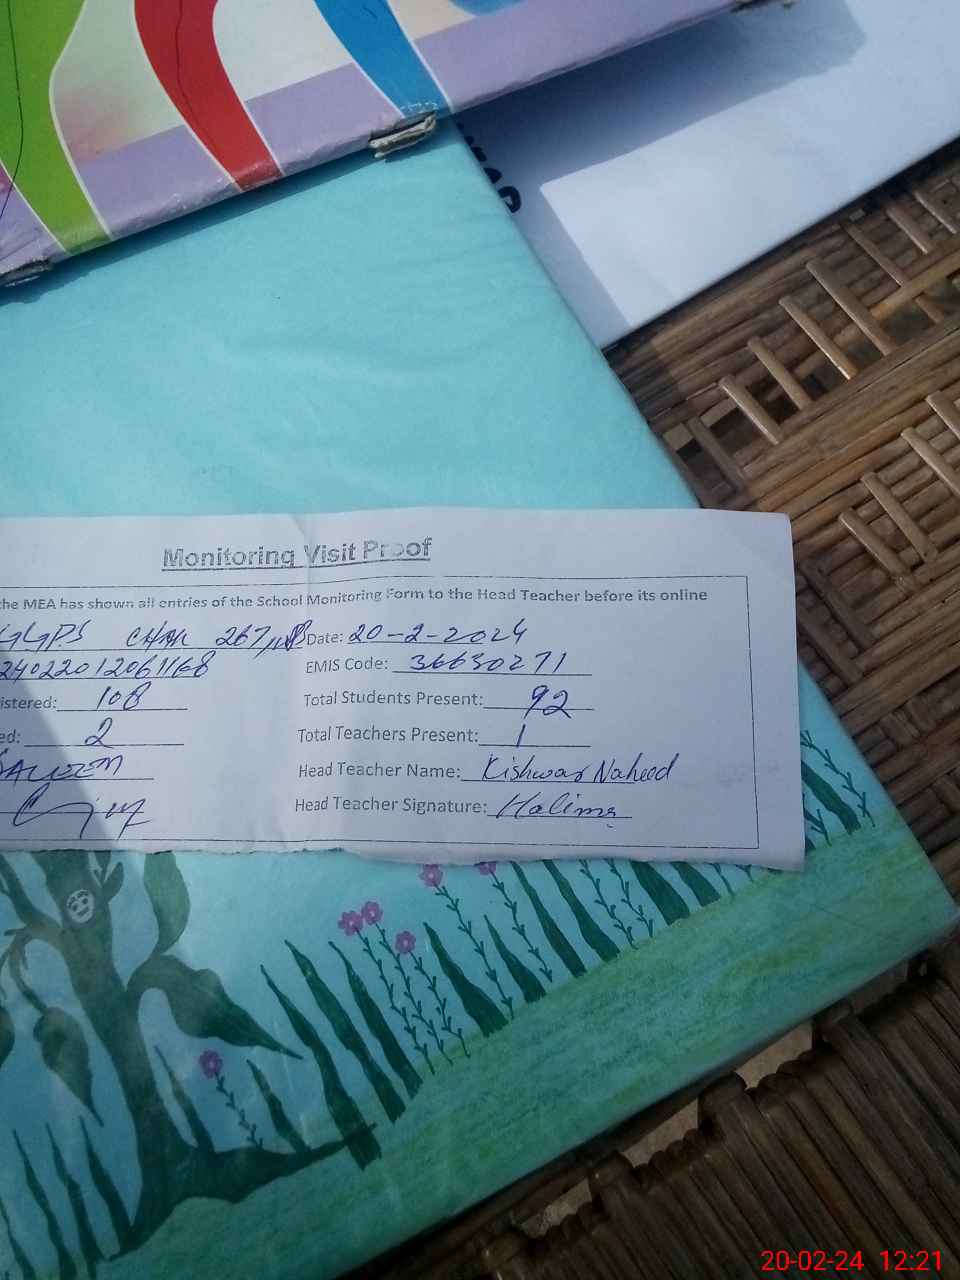 Monitoring Visit Proof
the MEA has shown all entries of the School Monitoring Form to the Head Teacher before its online
GGPS CHAK 267 Date: 20-2-2024
24022012061168 EMIS Code: 36630271
istered: 108 Total Students Present: 92
ed: 2 Total Teachers Present: 1
Head Teacher Name: Kishwar Naheed
Head Teacher Signature: Halima
20-02-24 12:21